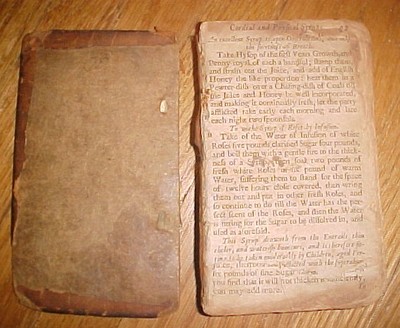 Cordial and Syrups. 53
An excellent Syrup to open
the of Breath.
Take Hysop of the first Years Growth, and
Penny royal, of each a handful; stamp them
and strain out the Juice, and add of English
Honey the like proportion; heat them in a
Pewter-dish over a Chafing-dish of Coals till
the Juice and Honey be well incorporated,
and making it continually fresh, let the party
afflicted take early each morning and late
each night two spoonfuls.
To make Syrup of Roses by Infusion.
Take of the Water of Infusion of white
Roses five pounds, clarified Sugar four pounds,
and boil them with a gentle fire to the thick-
ness of a Syrup: then soak two pounds of
fresh white Roses in pound of warm
Water, suffering them to stand for the space
of twelve hours close covered, then wring
them out and put in other fresh Roses, and
so continue to do till the Water has the per-
fect scent of the Roses, and then the Water
is fitting for the Sugar to be dissolved in, and
used as aforesaid.
This Syrup draweth from the Entrails, thin
choler, and waterish humours, and is therefore
taken by Children, aged
with
pounds of fine Sugar
you find that it will not thicken
may add more.